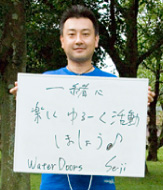 一緒に
楽しくゆるーく活動
しましょう♪
WaterDoors Seiji